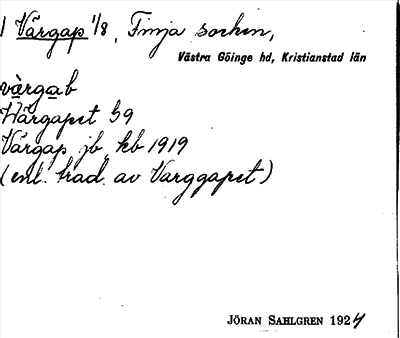 1 Värgap 1/8, Finja socken,
Västra Göinge hd, Kristianstad län
värgab
Wärgapet 59
Värgap jb, kb 1919
(enl. trad. av Varggapet)
JÖRAN SAHLGREN 1924